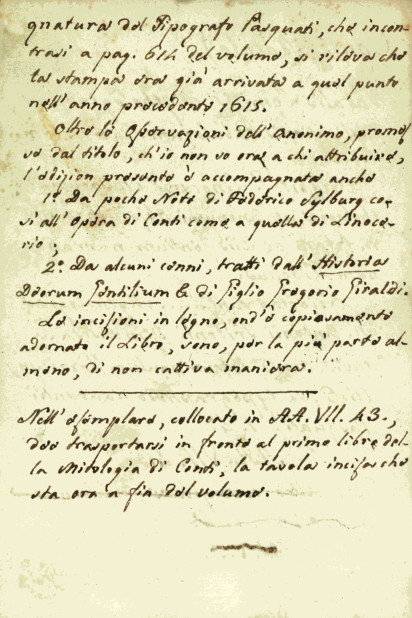 gnatura del Tipografo Pasquati, che incon-
trasi a pag. 614 del volume, si rileva che
la stampa era già arrivata a quel punto
nell' anno precedente 1615.
Oltre le Osservazioni dell' Anonimo, promes
se dal titolo, ch'io non so ora a chi attribuire,
l'edizion presente è accompagnata anche
1.º Da poche Note di Federico Sylburg co-
sì all' Opera di Conti come a quella di Linoce-
rio;
2.º Da alcuni cenni, tratti dall' Historia
Deorum Gentilium & di Giglio Gregorio Giraldi.
Le incisioni in legno, ond' è copiosamente
adornato il Libro, sono, per la più parte al-
meno, di non cattiva maniera.
Nell' esemplare, collocato in AA. VII. 43.,
dee trasportarsi in fronte al primo libro del-
la Mitologia di Conti, la tavola incisa che
sta ora a fin del volume.